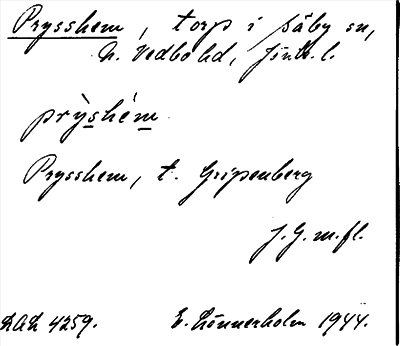 Prysshem, torp i Säby sn,
N. Vedbo hd, Jönk. l.
prỳshém
Prysshem, t. Gripenberg
J.G. m.fl.
DAL 4259. E. Lönnerholm 1944.